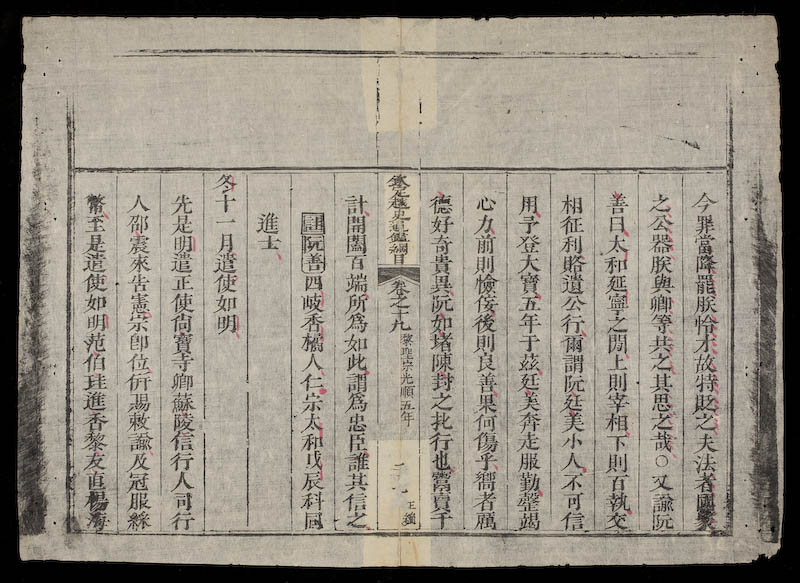 今罪當降罷朕怜才故特貶之夫法者國家
之公器朕與卿等共之其思之哉○又諭阮
善曰太和延寧之間上則宰相下則百執交
相征利賂遺公行爾謂阮廷美小人不可信
用予登大寶五年于茲廷美奔走服勤罄竭
心力前則憸佞後則良善果何傷乎嚮者厲
德好奇貴異阮如堵陳封之批行也鬻賣千
欽定越史通鑑綱目 卷之十九 黎聖宗光順五年 正編
計開闔百端所為如此謂為忠臣誰其信之
註阮善四岐香橘人仁宗太和戊辰科同
進士
冬十一月遣使如明
先是明遣正使尚寶寺卿蘇陵信行人司行
人邵震來告憲宗即位併賜敕諭及冠服綵
幣至是遣使如明范伯珪進香黎友直楊